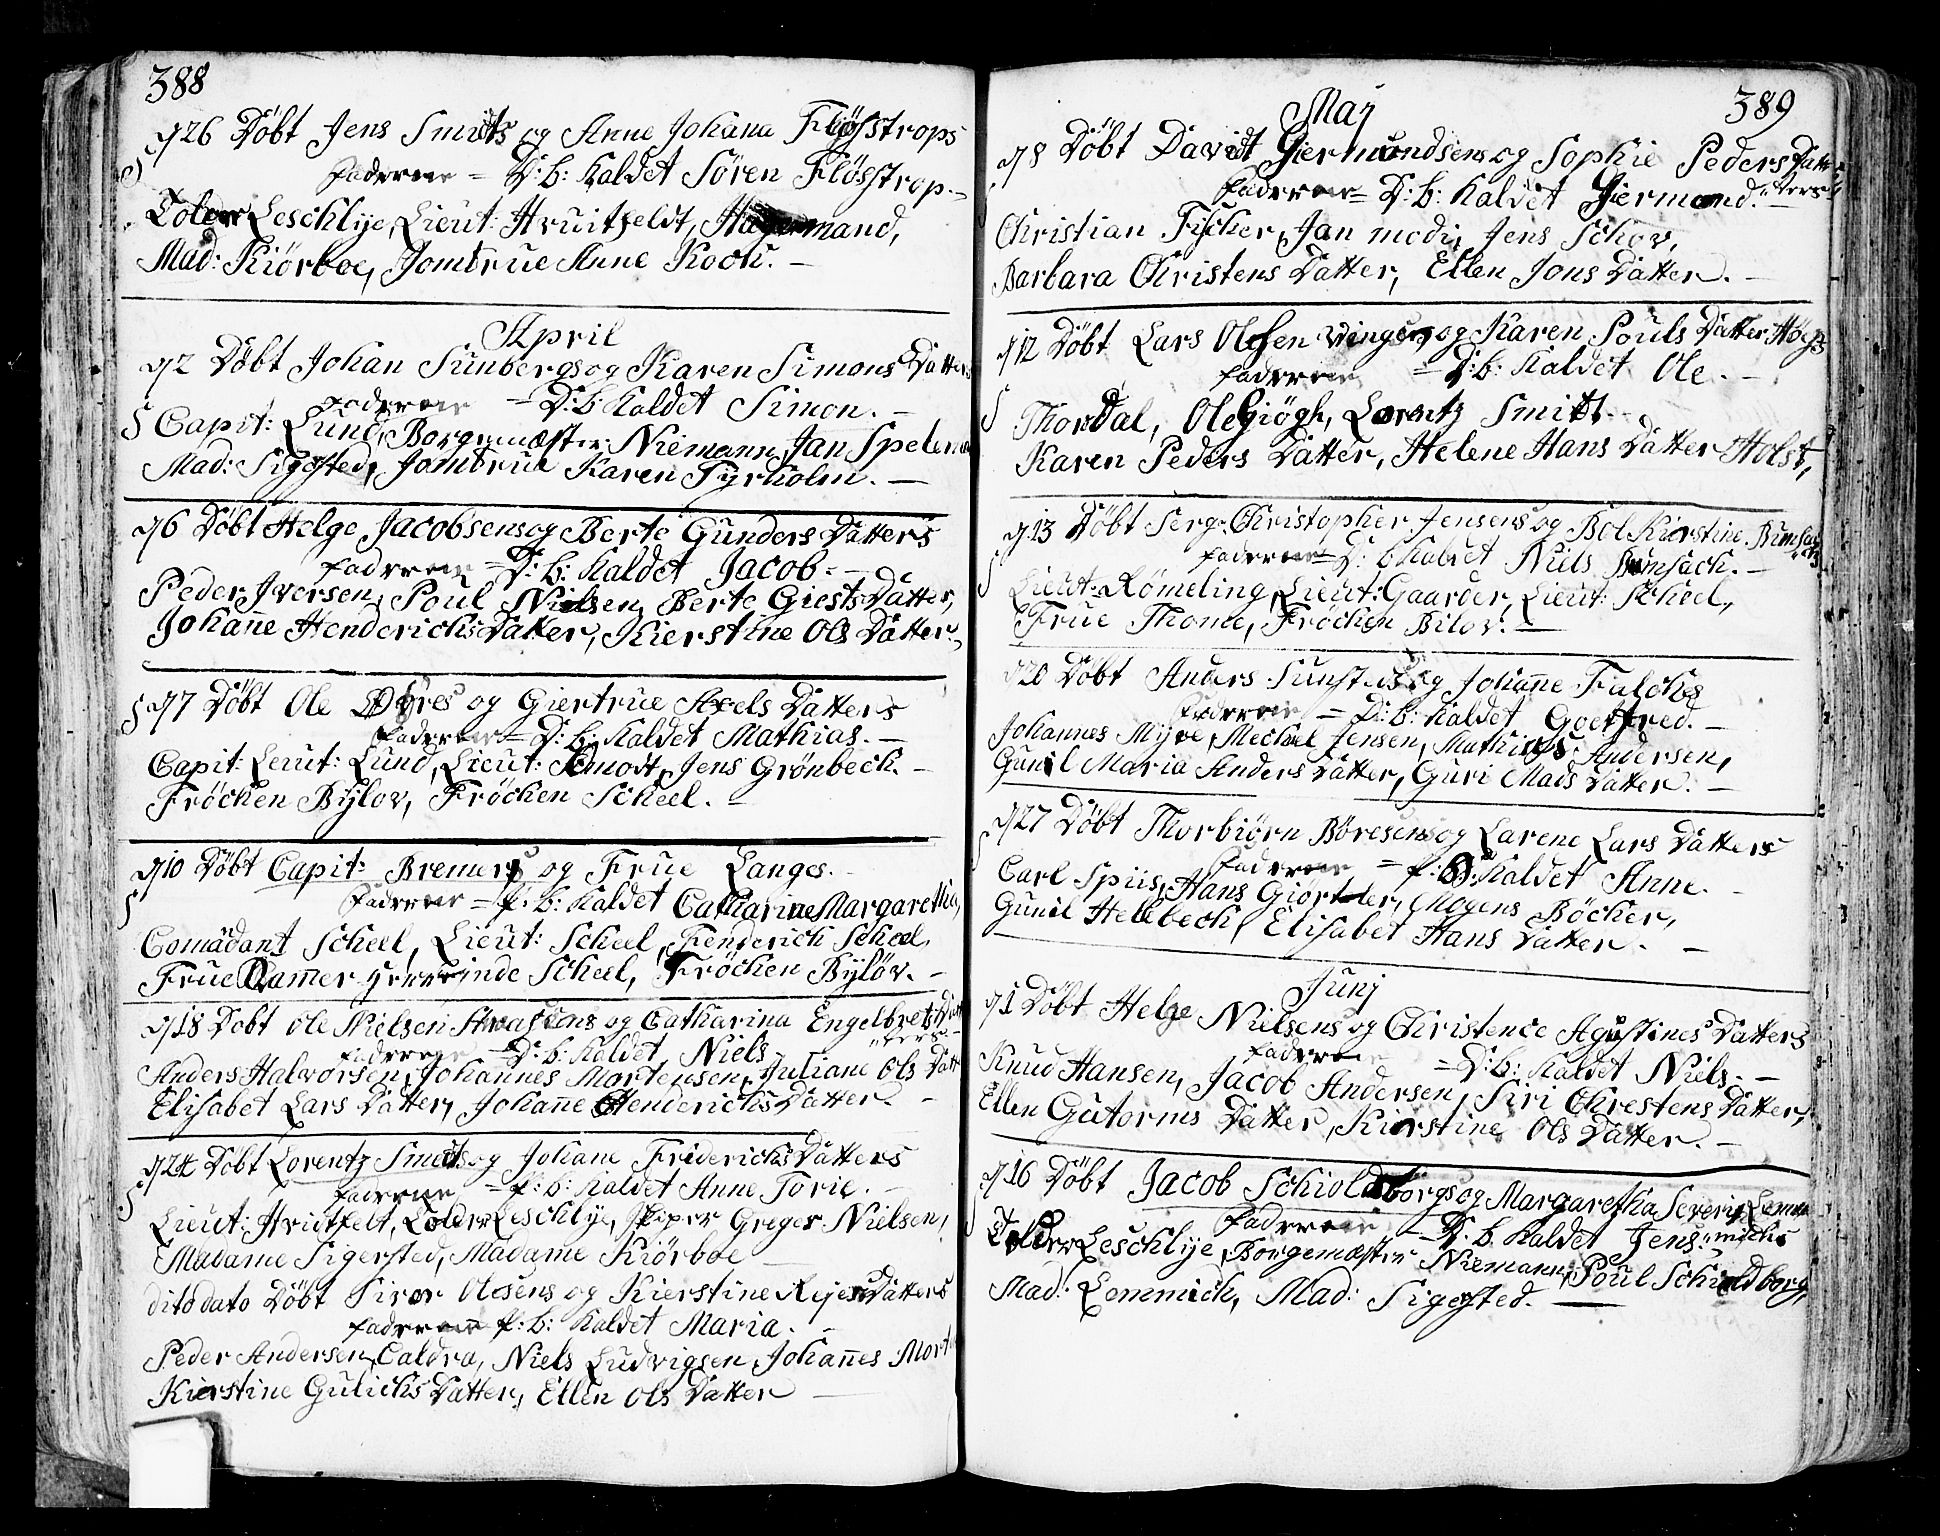 388
d 26 Döbt Jens Smidts og Anne Johana Flösstrops
Fadrene = D: b: Kaldet Sören Flösstrop. -
Toler Leschlye, Lieut: Hvuitfeldt, Hagermand,
Mad: Kiörboe, Jomfrue Anne Koch. -
April
d 2 Döbt Johan Sunbergs og Karen Simons Datters
Fadrene = D: b Kaldet Simon. -
S Capit: Lund, Borgemæster Niemann, Jan Spelem
Mad: Sigested, Jomfrue Karen Tyrholm. -
d 6 Döbt Helge Jacobsens og Berte Gunders Datters
Fadrene = D: b: Kaldet Jacob. -
Peder Iversen, Poul Nielsen, Berte Giests Datter,
Johanne Henderichs Datter, Kierstine Ols Datter.
S d 7 Döbt Ole Dyres og Giertrue Axels Datters
Fadrene = D: b: Kaldet Mathias. -
Capit: Leut: Lund, Lieut: Smost, Jens Grönbeck. -
Fröchen Bylov, Fröchen Scheel. -
d 10 Döbt Capit: Bremers og Frue Langes.
Fadrene = p: b: Kaldet Catharine Margaretha,
Comãdant Scheel, Lieut: Scheel, Fenderich Scheel,
Frue Ramer, Scheel, Fröchen Bylöv. -
d 18 Döbt Ole Nielsen og Catharina Engelbrets Dat
Fadrene = D: b: Kaldet Niels ters. -
Anders Halvorsen, Johannes Mortensen, Juliane Ols Datt
Elisabet Lars Datter, Johanne Henderichs Datter. -
d 24 Döbt Lorentz Smidts og Johane Friderichs Datters
Fadrene = p: b: Kaldet Anne Torie. -
Lieut: Hvuitfelt, Toler Leschlye, Skiper Greger Nielsen,
Madame Sigersted, Madame Kiörboe -
dito dato Döbt Siver Olesens og Kierstine Rejers Datters
Fadrene p: b: Kaldet Maria. -
Peder Andersen Caldra, Niels Ludvigsen, Johannes Mort
Kierstine Gulichs Datter, Ellen Ols Datter -
389
Maj
d 8 Döbt Davidt Giermundsens og Sophie Peders Dat
Fadrene = D: b: Kaldet Giermond. ters
Christian Fischer, Jan modi, Jens Schov,
Barbara Christens Datter, Ellen Jons Datter. -
d 12 Döbt Lars Olesen Vinger og Karen Pouls Datter Höegs
Fadrene = D: b: Kaldet Ole. -
S Thordal, Ole Giögh, Lorentz Smitt.
Karen Peders Datter, Helene Hans Datter Holst,
d 13 Döbt Serg: Christopher Jensens og Bol Kirstine Bunsachs
Fadrene = D: b Kaldet Niels Bunsach. -
Lieut: Römeling, Lieut: Gaarder, Lieut: Scheel,
Frue Thome, Fröchen Bilov. -
d 20 Döbt Anders Sunsteds og Johanne Falchs
Fadrene = D: b: Kaldet Goetfred. -
Johannes Myre, Mechael Jensen, Mathias Andersen,
Gunil Maria Anders Datter, Guri Mads Datter. -
d 27 Döbt Thorbiörn Böresens og Larene Lars Datters
Fadrene = p: b: Kaldet Anne. -
Carl Spiis, Hans Giortler, Mogens Böcker,
Gunil Hellbech, Elisabet Hans Datter. -
Junj
d 1 Döbt Helge Nielsens og Christence Agustines Datters
Fadrene = D: b: Kaldet Niels. -
Knud Hansen, Jacob Andersen, Siri Chrestens Datter,
Ellen Gutorms Datter, Kierstine Ols Datter. -
d 16 Döbt Jacob Schioldborgs og Margaretha Severin Lemmichs
Fadrene = D: b. Kaldet Jens.
Toler Leschlye, Borgemæster Niemann, Poul Schioldborg,
Mad: Lemmich, Mad: Sigested. -